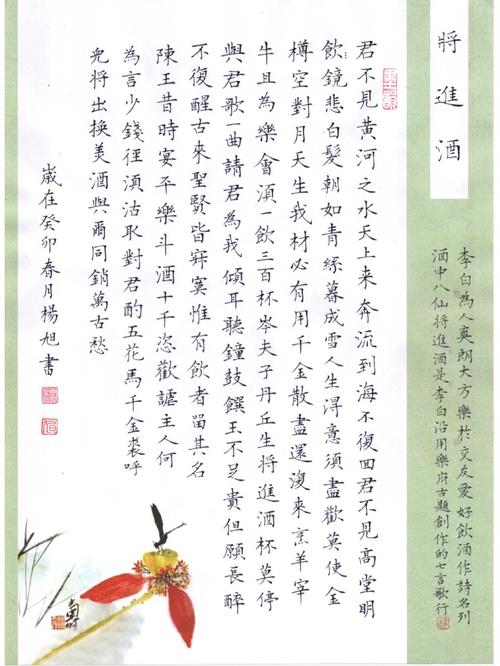 將進酒
李白為人爽朗大方樂於交友愛好飲酒作詩名列
酒中八仙將進酒是李白沿用樂府古題創作的七言歌行
君不見黃河之水天上来奔流到海不復回君不見高堂明
飲鏡悲白髮朝如青絲暮成雪人生得意須盡歡莫使金
樽空對月天生我材必有用千金散盡還復来烹羊宰
牛且為樂會須一飲三百杯岑夫子丹丘生將進酒杯莫停
與君歌一曲請君為我傾耳聽鐘鼓饌王不足貴但願長醉
不復醒古来聖賢皆寂寞惟有飲者留其名
陳王昔時宴平樂斗酒十千恣歡謔主人何
為言少錢徑須沽取對君酌五花馬千金裘呼
兒將出換美酒與爾同銷萬古愁
歲在癸卯春月楊旭書